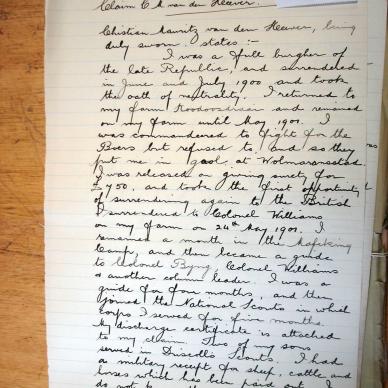 Claim C M van den Heever.
Christian Mauritz van den Heever, being
duly sworn, states:-
I was a full burgher of
the late Republic, and surrendered
in June and July 1900 and took
the oath of neutrality. I returned to
my farm and remained
on my farm until May 1901. I
was commandeered to fight for the
Boers but refused to, and so they
put me in gaol at Wolmaransstad.
I was released on giving surety for
£750, and took the first opportunity
of surrendering again to the British
I surrendered to Colonel Williams
on my farm on 24th May 1901. I
remained a month in the Mafeking
Camp, and then became a guide
to Colonel Byng, Colonel Williams
& another column leader. I was a
guide for four months, and then
joined the National Scouts in which
Corps I served for five months.
My discharge certificate is attached
to my claim. Two of my sons
served in Driscoll's Scouts. I had
a military receipt for sheep, cattle and
horses which has been paid out. I
do not